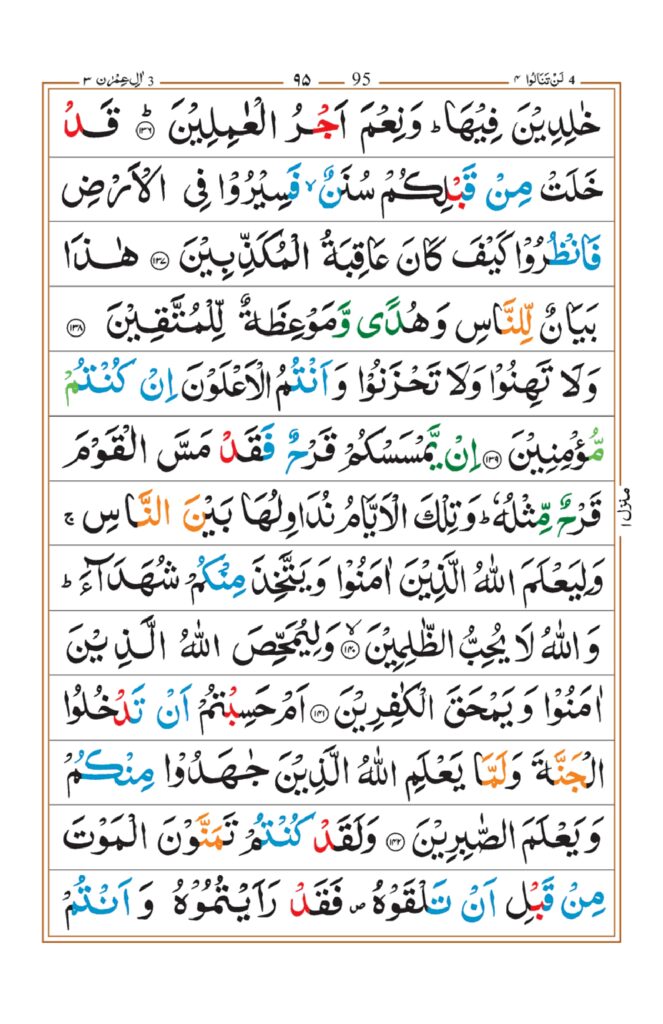 4 لَنْ تَنَالُوا ۴ 95 ۹۵ 3 اٰلِ عِمْرٰن ۳
خٰلِدِيْنَ فِيْهَا ؕ وَنِعْمَ اَجْرُ الْعٰمِلِيْنَ ؕ ﴿۱۳۶﴾ قَدْ
خَلَتْ مِنْ قَبْلِكُمْ سُنَنٌ ۙ فَسِيْرُوْا فِي الْاَرْضِ
فَانْظُرُوْا كَيْفَ كَانَ عَاقِبَةُ الْمُكَذِّبِيْنَ ﴿۱۳۷﴾ هٰذَا
بَيَانٌ لِّلنَّاسِ وَهُدًى وَّمَوْعِظَةٌ لِّلْمُتَّقِيْنَ ﴿۱۳۸﴾
وَلَا تَهِنُوْا وَلَا تَحْزَنُوْا وَاَنْتُمُ الْاَعْلَوْنَ اِنْ كُنْتُمْ
مُّؤْمِنِيْنَ ﴿۱۳۹﴾ اِنْ يَّمْسَسْكُمْ قَرْحٌ فَقَدْ مَسَّ الْقَوْمَ
قَرْحٌ مِّثْلُهٗ ؕ وَتِلْكَ الْاَيَّامُ نُدَاوِلُهَا بَيْنَ النَّاسِ ۚ
وَلِيَعْلَمَ اللّٰهُ الَّذِيْنَ اٰمَنُوْا وَيَتَّخِذَ مِنْكُمْ شُهَدَآءَ ؕ
وَاللّٰهُ لَا يُحِبُّ الظّٰلِمِيْنَ ۙ ﴿۱۴۰﴾ وَلِيُمَحِّصَ اللّٰهُ الَّذِيْنَ
اٰمَنُوْا وَيَمْحَقَ الْكٰفِرِيْنَ ﴿۱۴۱﴾ اَمْ حَسِبْتُمْ اَنْ تَدْخُلُوا
الْجَنَّةَ وَلَمَّا يَعْلَمِ اللّٰهُ الَّذِيْنَ جٰهَدُوْا مِنْكُمْ
وَيَعْلَمَ الصّٰبِرِيْنَ ﴿۱۴۲﴾ وَلَقَدْ كُنْتُمْ تَمَنَّوْنَ الْمَوْتَ
مِنْ قَبْلِ اَنْ تَلْقَوْهُ ۪ فَقَدْ رَاَيْتُمُوْهُ وَاَنْتُمْ
منزل ۱